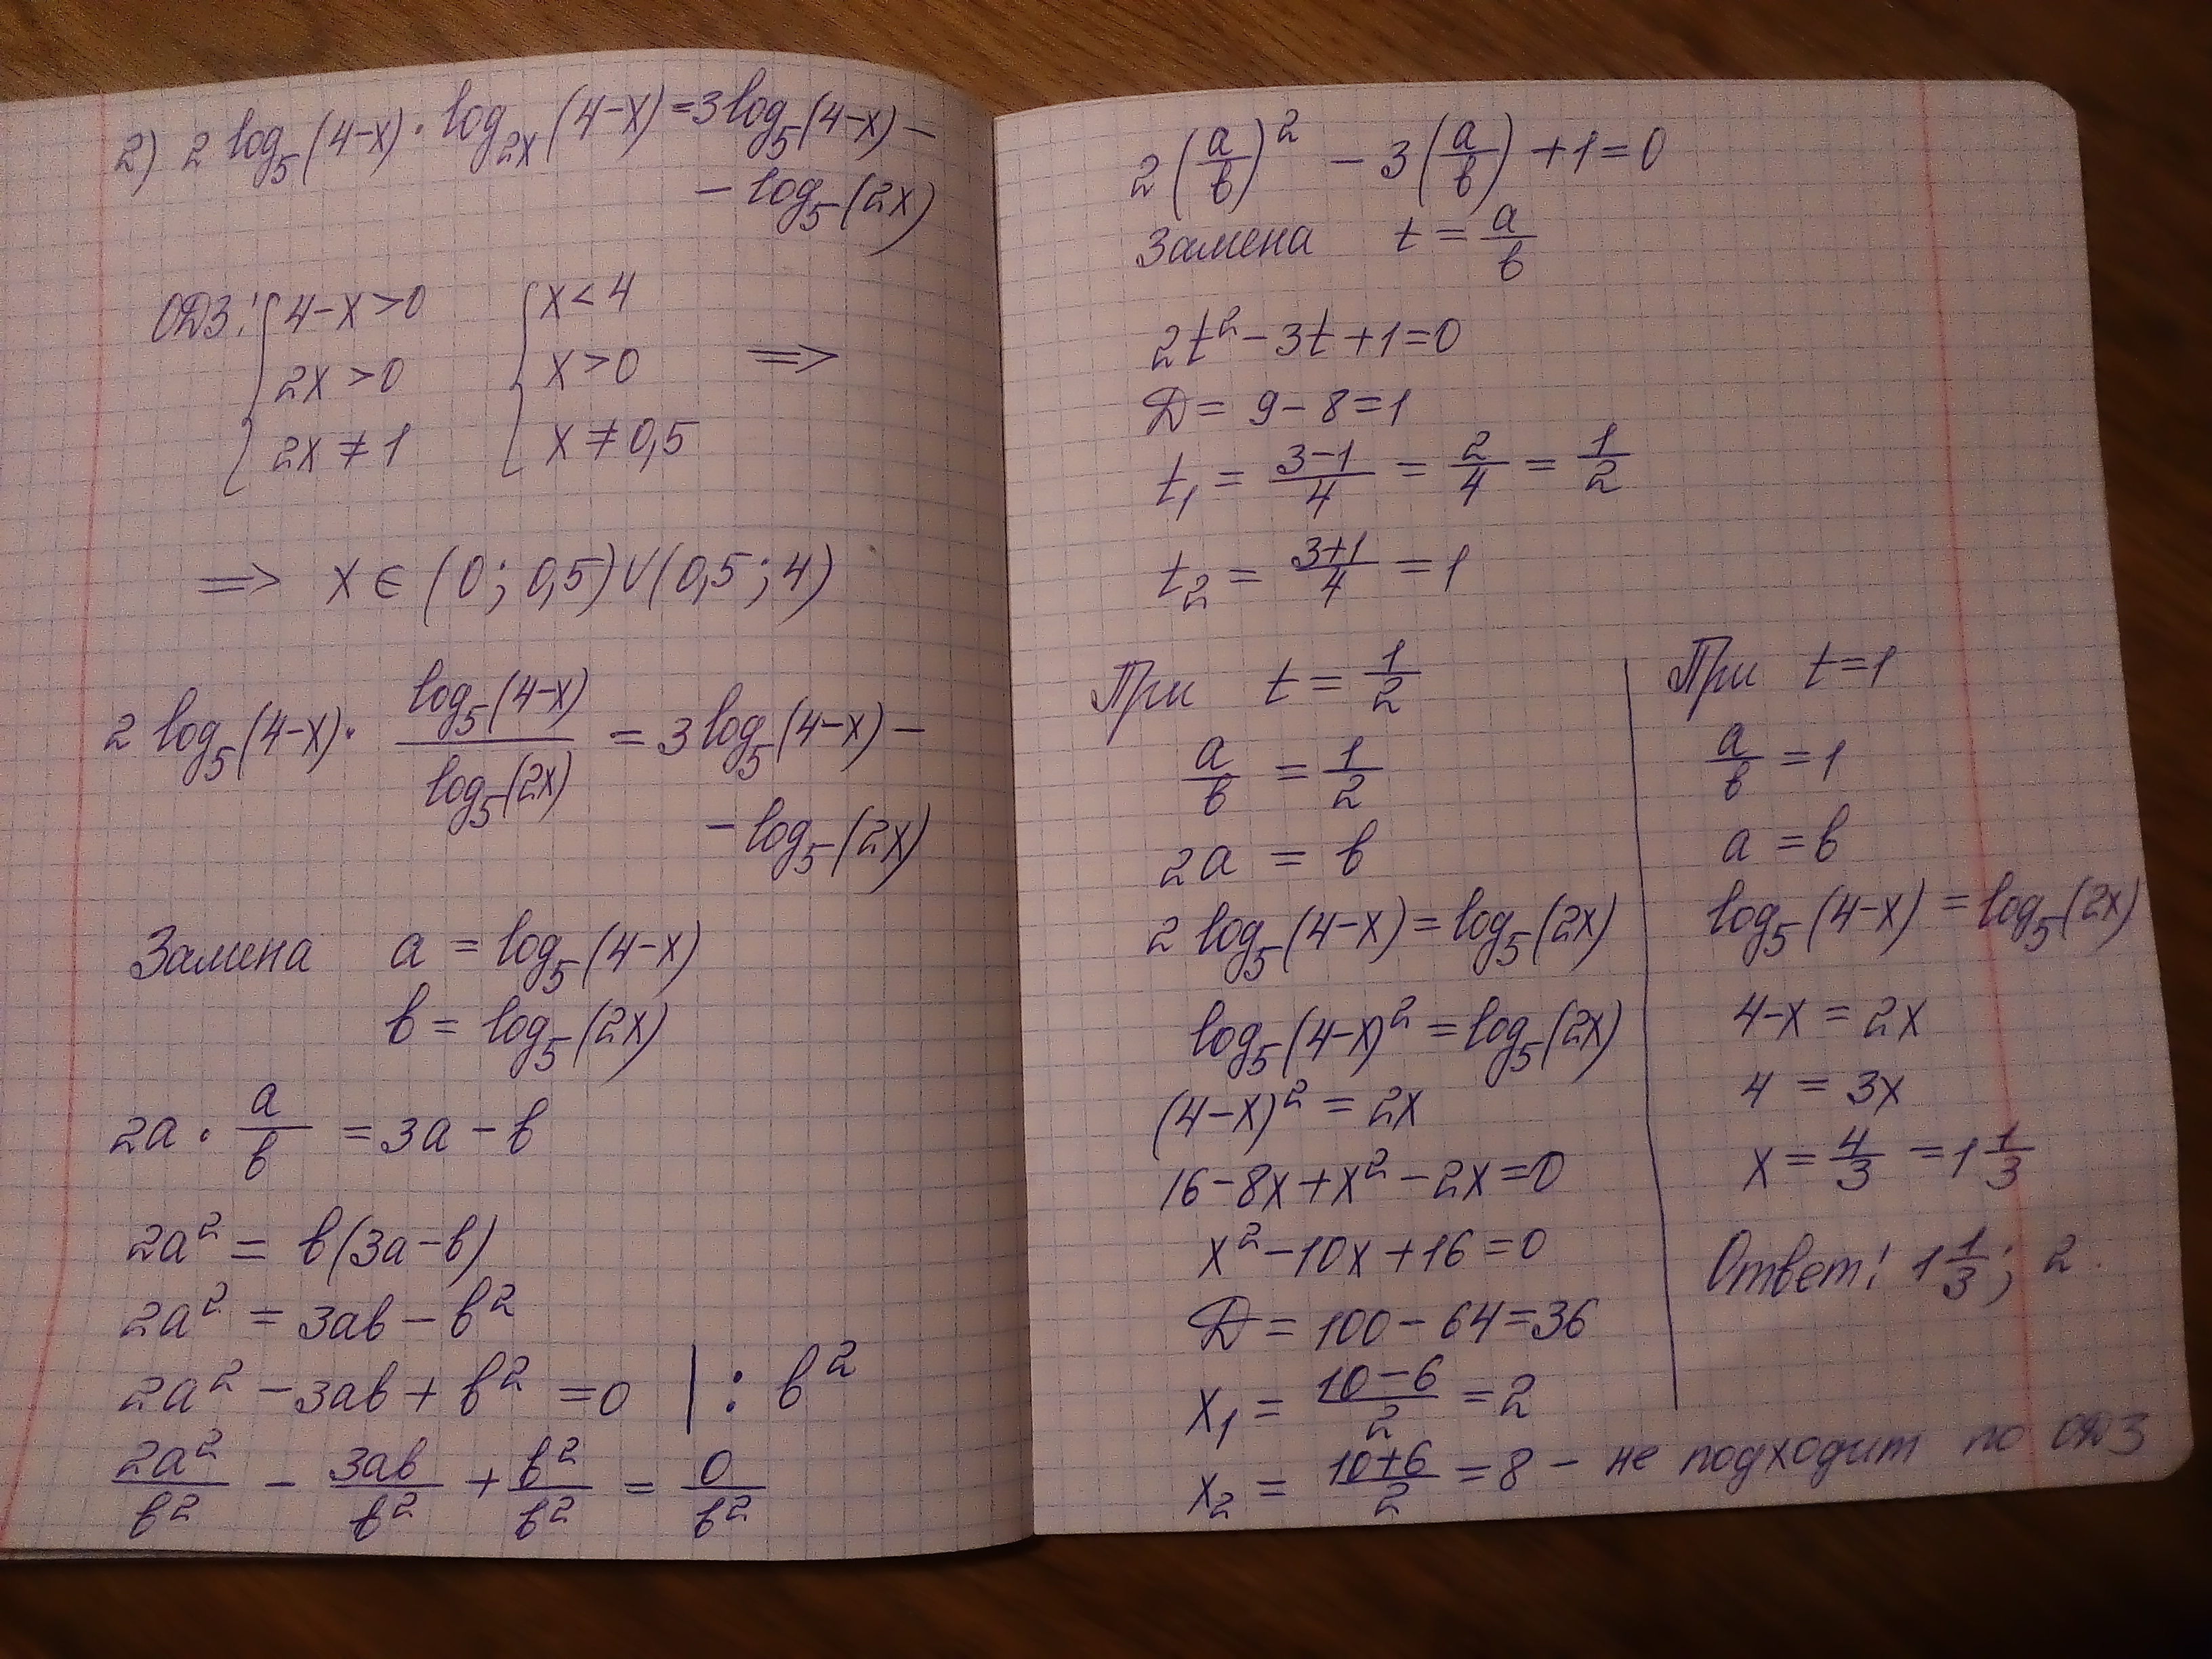 2) 2 log₅(4-x)·log₂ₓ(4-x)=3log₅(4-x)-
- log₅(2x)
ОДЗ: { 4-x>0 { x<4
2x>0 x>0 =>
2x≠1 x≠0,5
=> x∈(0; 0,5)∪(0,5; 4)
2 log₅(4-x)· log₅(4-x)/log₅(2x) = 3log₅(4-x)-
- log₅(2x)
Замена a = log₅(4-x)
b = log₅(2x)
2a · a/b = 3a - b
2a² = b(3a-b)
2a² = 3ab - b²
2a² - 3ab + b² = 0 | : b²
2a²/b² - 3ab/b² + b²/b² = 0/b²
2(a/b)² - 3(a/b) + 1 = 0
Замена t = a/b
2t² - 3t + 1 = 0
Д = 9 - 8 = 1
t₁ = (3-1)/4 = 2/4 = 1/2
t₂ = (3+1)/4 = 1
При t = 1/2
a/b = 1/2
2a = b
2 log₅(4-x) = log₅(2x)
log₅(4-x)² = log₅(2x)
(4-x)² = 2x
16 - 8x + x² - 2x = 0
x² - 10x + 16 = 0
Д = 100 - 64 = 36
x₁ = (10-6)/2 = 2
x₂ = (10+6)/2 = 8 - не подходит по ОДЗ
При t = 1
a/b = 1
a = b
log₅(4-x) = log₅(2x)
4-x = 2x
4 = 3x
x = 4/3 = 1 1/3
Ответ: 1 1/3; 2.